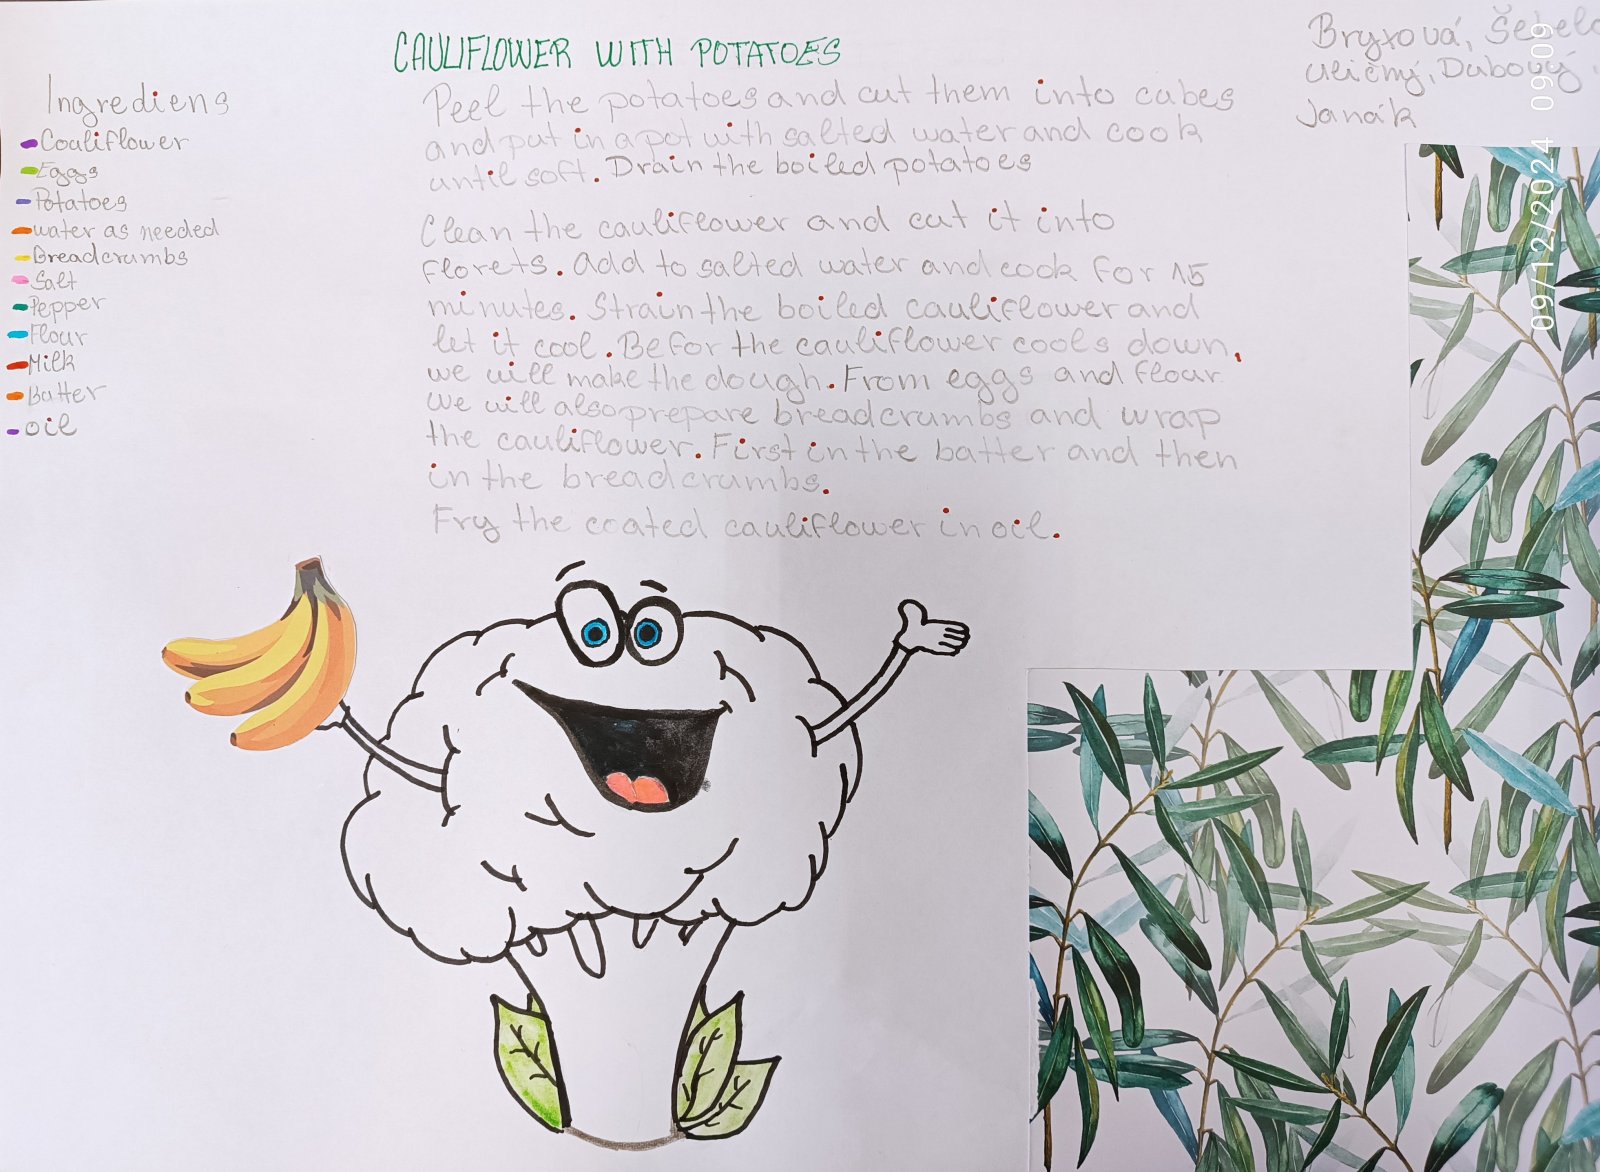 CAULIFLOWER WITH POTATOES
Bryxová,
Uličný, Dubový,
Janák
Ingrediens
Couliflower
Eggs
Potatoes
water as needed
Breadcrumbs
Salt
Pepper
Flour
Milk
Butter
oil
Peel the potatoes and cut them into cubes
and put in a pot with salted water and cook
until soft. Drain the boiled potatoes
Clean the cauliflower and cut it into
florets. Add to salted water and cook for 15
minutes. Strain the boiled cauliflower and
let it cool. Befor the cauliflower cools down,
we will make the dough. From eggs and flour
we will also prepare breadcrumbs and wrap
the cauliflower. First in the batter and then
in the breadcrumbs.
Fry the coated cauliflower in oil.
09/12/2024 09:09